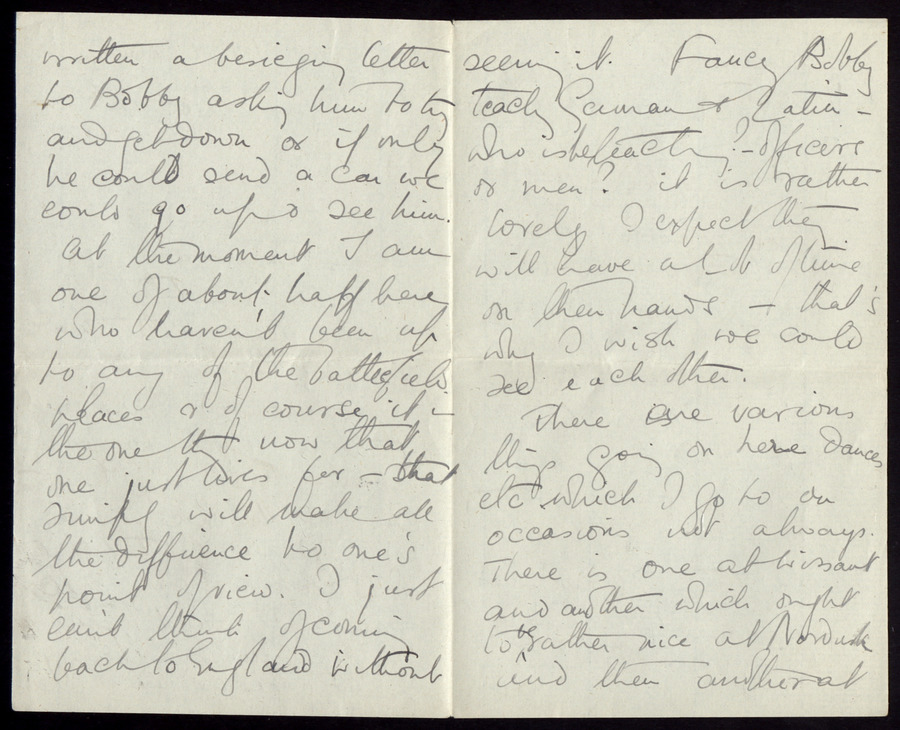 written a besieging letter
to Bobby asking him to try
and get down or if only
he could send a car we
could go up & see him.
At the moment I am
one of about half here
who haven't been up
to any of the battlefield
places & of course it is
the one thing now that
one just lives for – that
simply will make all
the difference to one's
point of view. I just
can't think of coming
back to England without
seeing it. Fancy Bobby
teach German & Latin –
who is he teaching? – officers
or men? it is rather
lovely I expect they
will have a lot of time
on their hands – that's
why I wish we could
see each other.
There are various
things going on here dances
etc which I go to on
occasions not always.
There is one at Wissant
and another which ought
to be rather nice at
and then another at